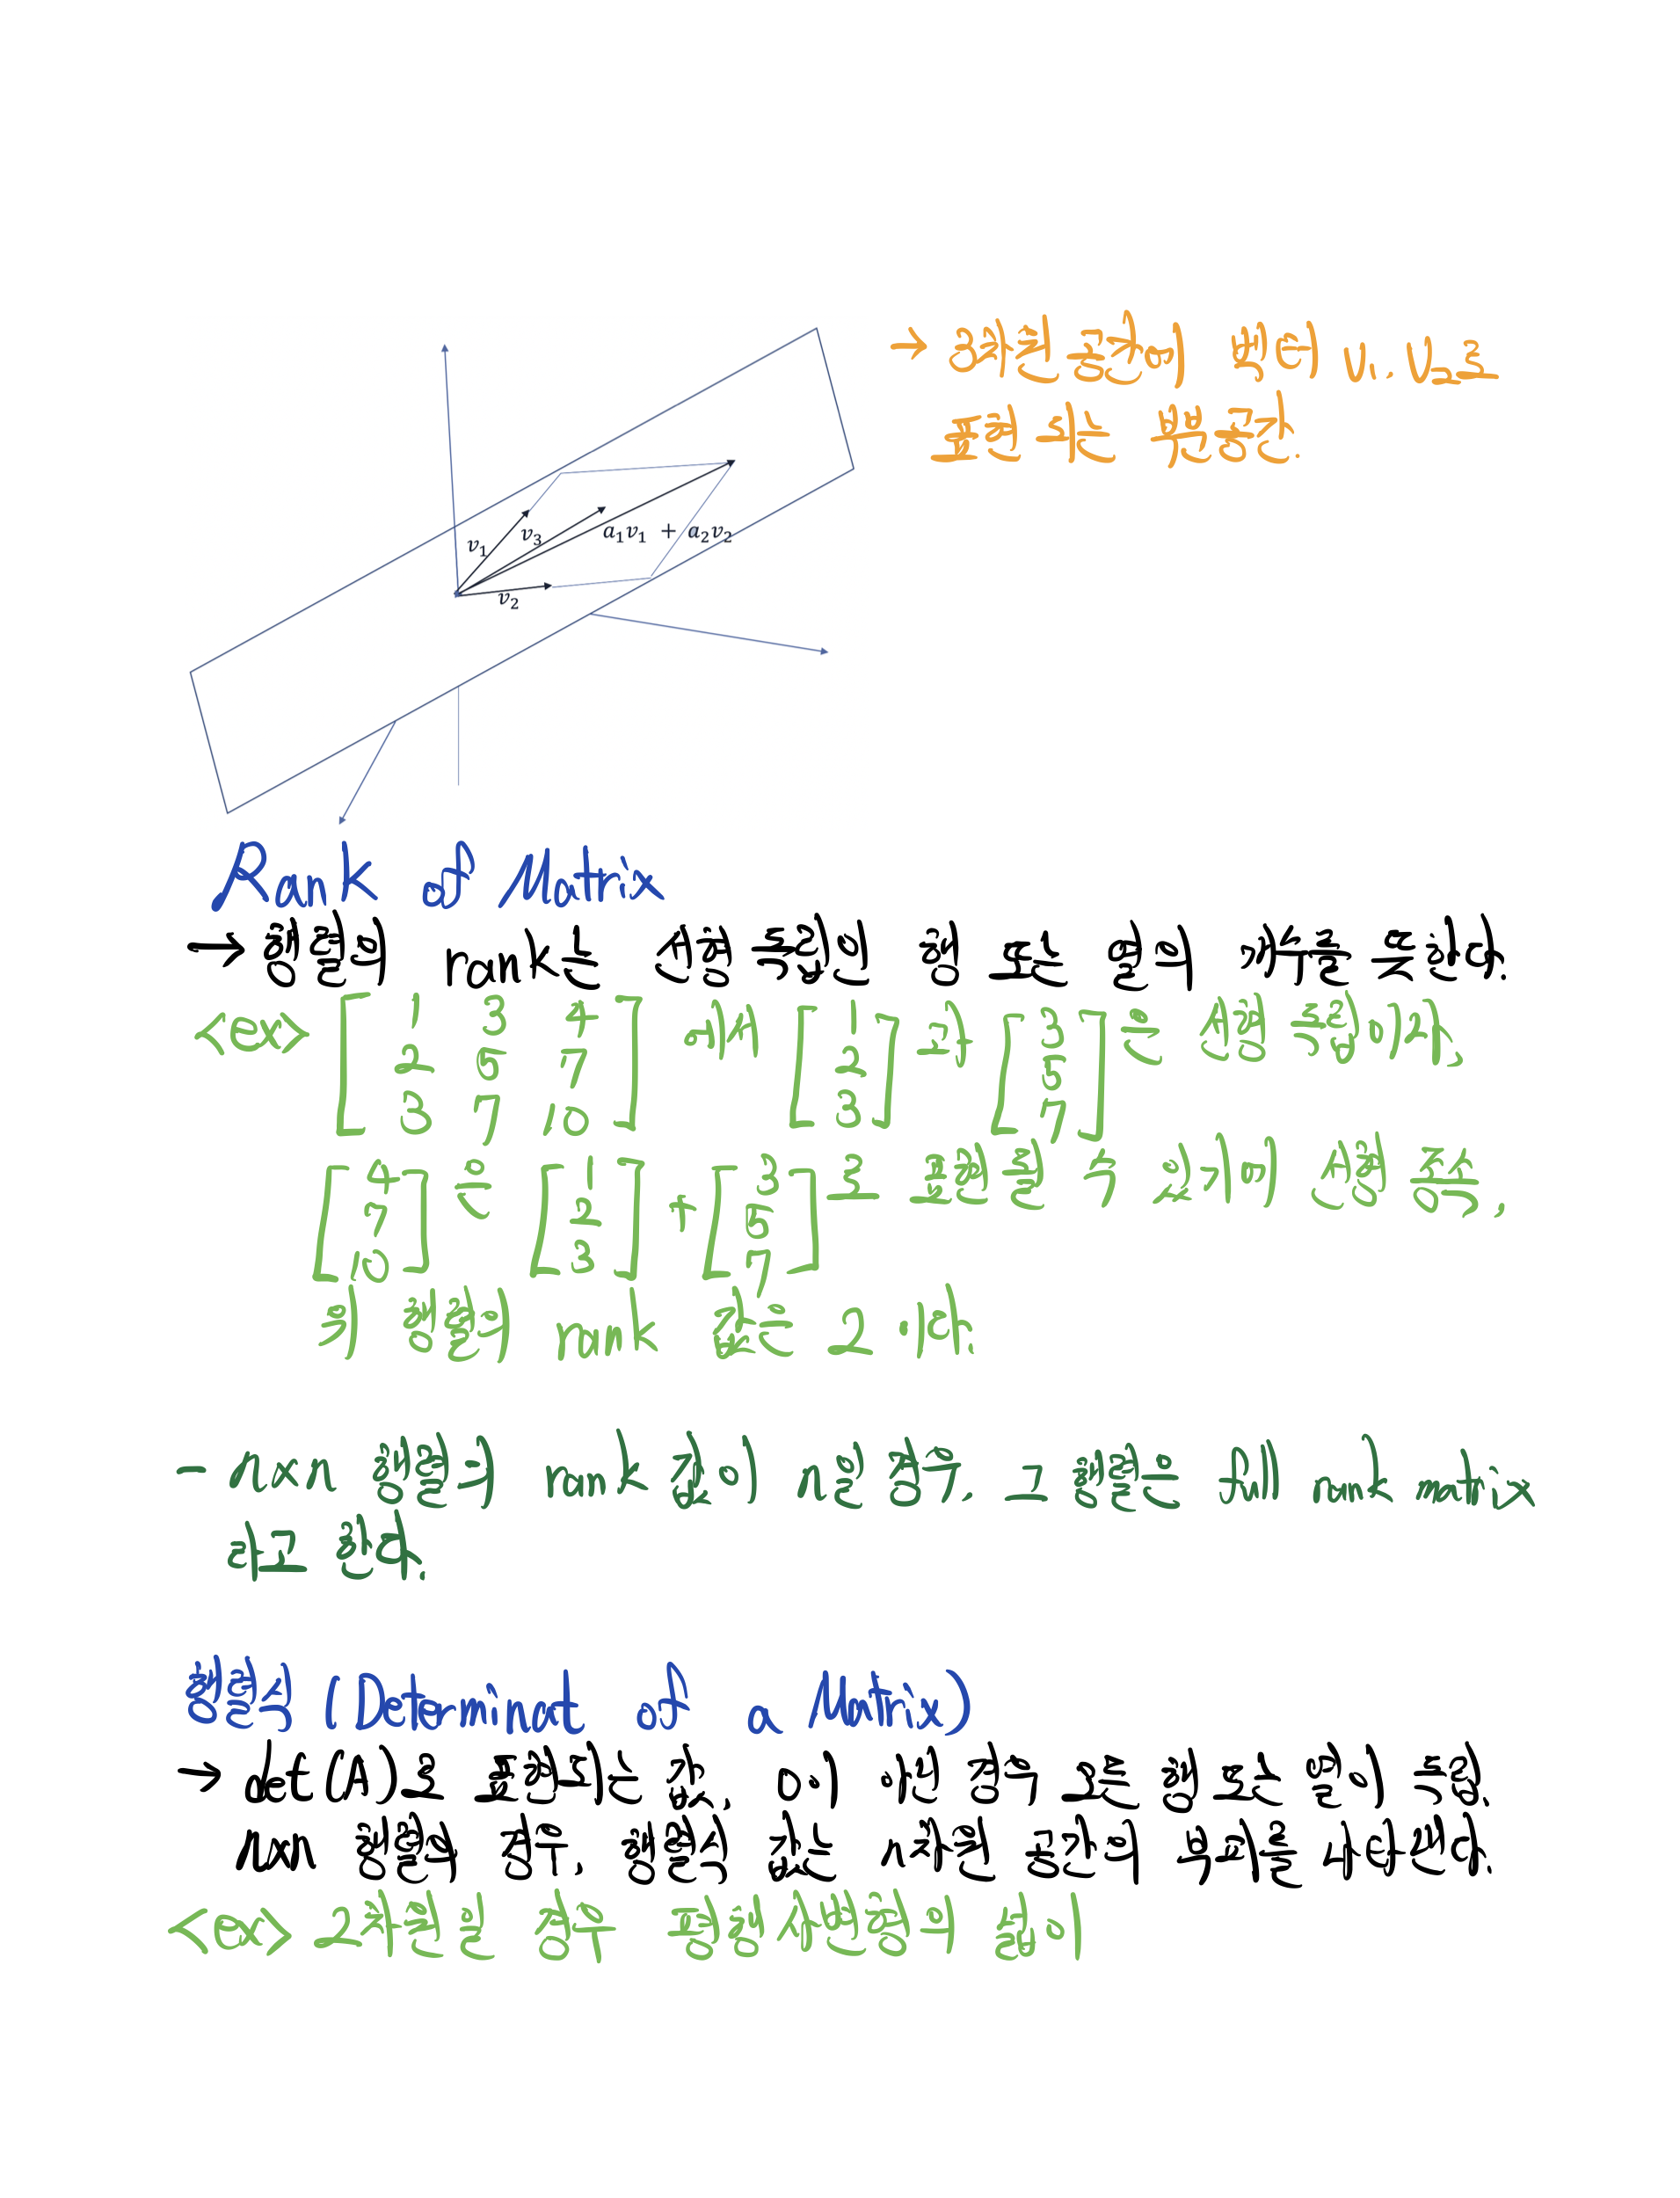 → 3차원 공간에 벡터 V₁. V₂로
표현 되는 부분공간.
v₁
v₃
a₁v₁ + a₂v₂
v₂
Rank of Matrix
→ 행렬의 rank는 선형 독립인 행 또는 열의 개수를 뜻한다.
<ex> [1 3 4; 2 5 7; 3 7 10] 에서 [1 2 3] 과 [3 5 7] 은 선형 독립이다,
[4 7 10] 은 [1 2 3] + [3 5 7] 로 표현될 수 있기에 선형 종속,
위 행렬의 rank 값은 2 이다.
- nxn 행렬의 rank 값이 n일 경우, 그 행렬은 full rank matrix
라고 한다.
행렬식 (Determinat of a Matrix)
→ det(A)로 표현되는 값, 0이 아닌 경우 모든 행 또는 열이 독립.
nxn 행렬의 경우, 행렬식 값는 n차원 공간의 부피를 나타낸다.
<ex> 2차원일 경우 평행사변형의 넓이